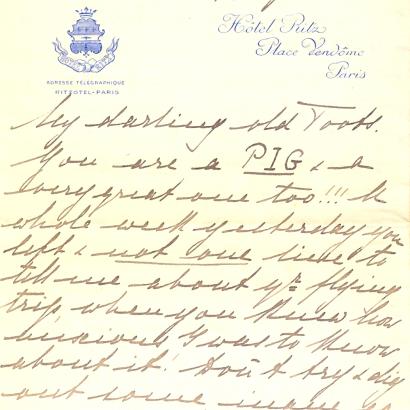 Hôtel Ritz
Place Vendôme
Paris
HOTEL RITZ
ADRESSE TÉLÉGRAPHIQUE
RITZOTEL-PARIS
My darling old Toots.
You are a PIG & a
very great one too!!! A
whole week yesterday you
left & not one line to
tell me about yr flying
trip, when you knew how
anxious I was to know
about it! Don't try & dig
out some inane